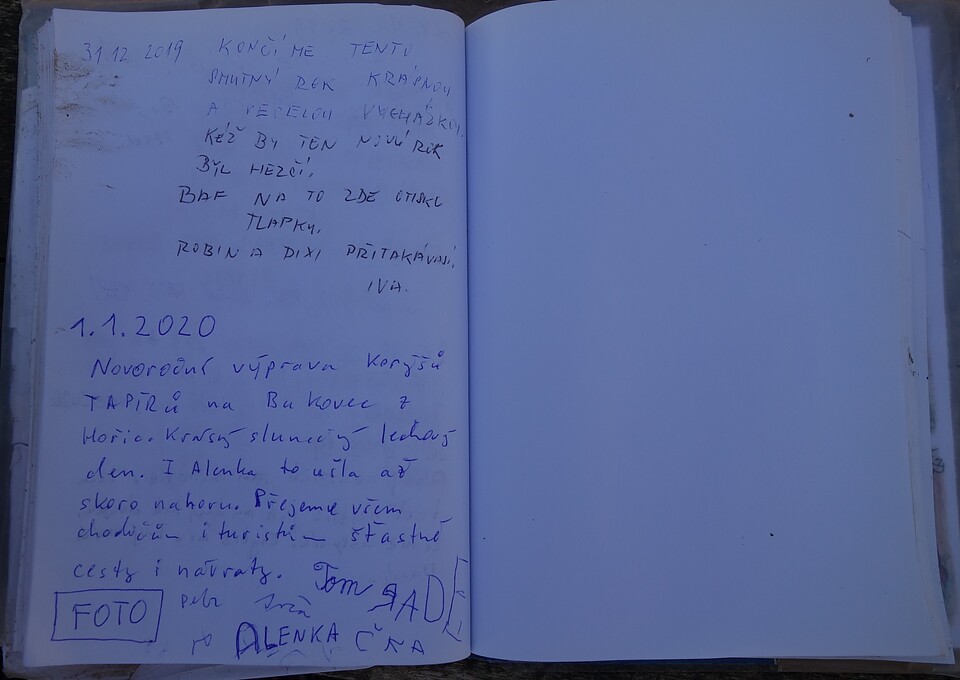 31.12 2019 KONČÍME TENTO
SMUTNÝ ROK KRÁSNOU
A VESELOU VYCHÁZKOU.
KÉŽ BY TEN NOVÝ ROK
BYL HEZČÍ.
BAF NA TO ZDE OTISKL
TLAPKU.
ROBIN A DIXI PŘITAKÁVAJÍ.
IVA.
1.1.2020
Novoroční výprava Korýšů
TAPÍRŮ na Bukovec z
Hořic. Krásný slunečný ledový
den. I Alenka to ušla až
skoro nahoru. Přejeme všem
chodičům i turistům šťastné
cesty i návraty. Tom
FOTO Petr
ALENKA